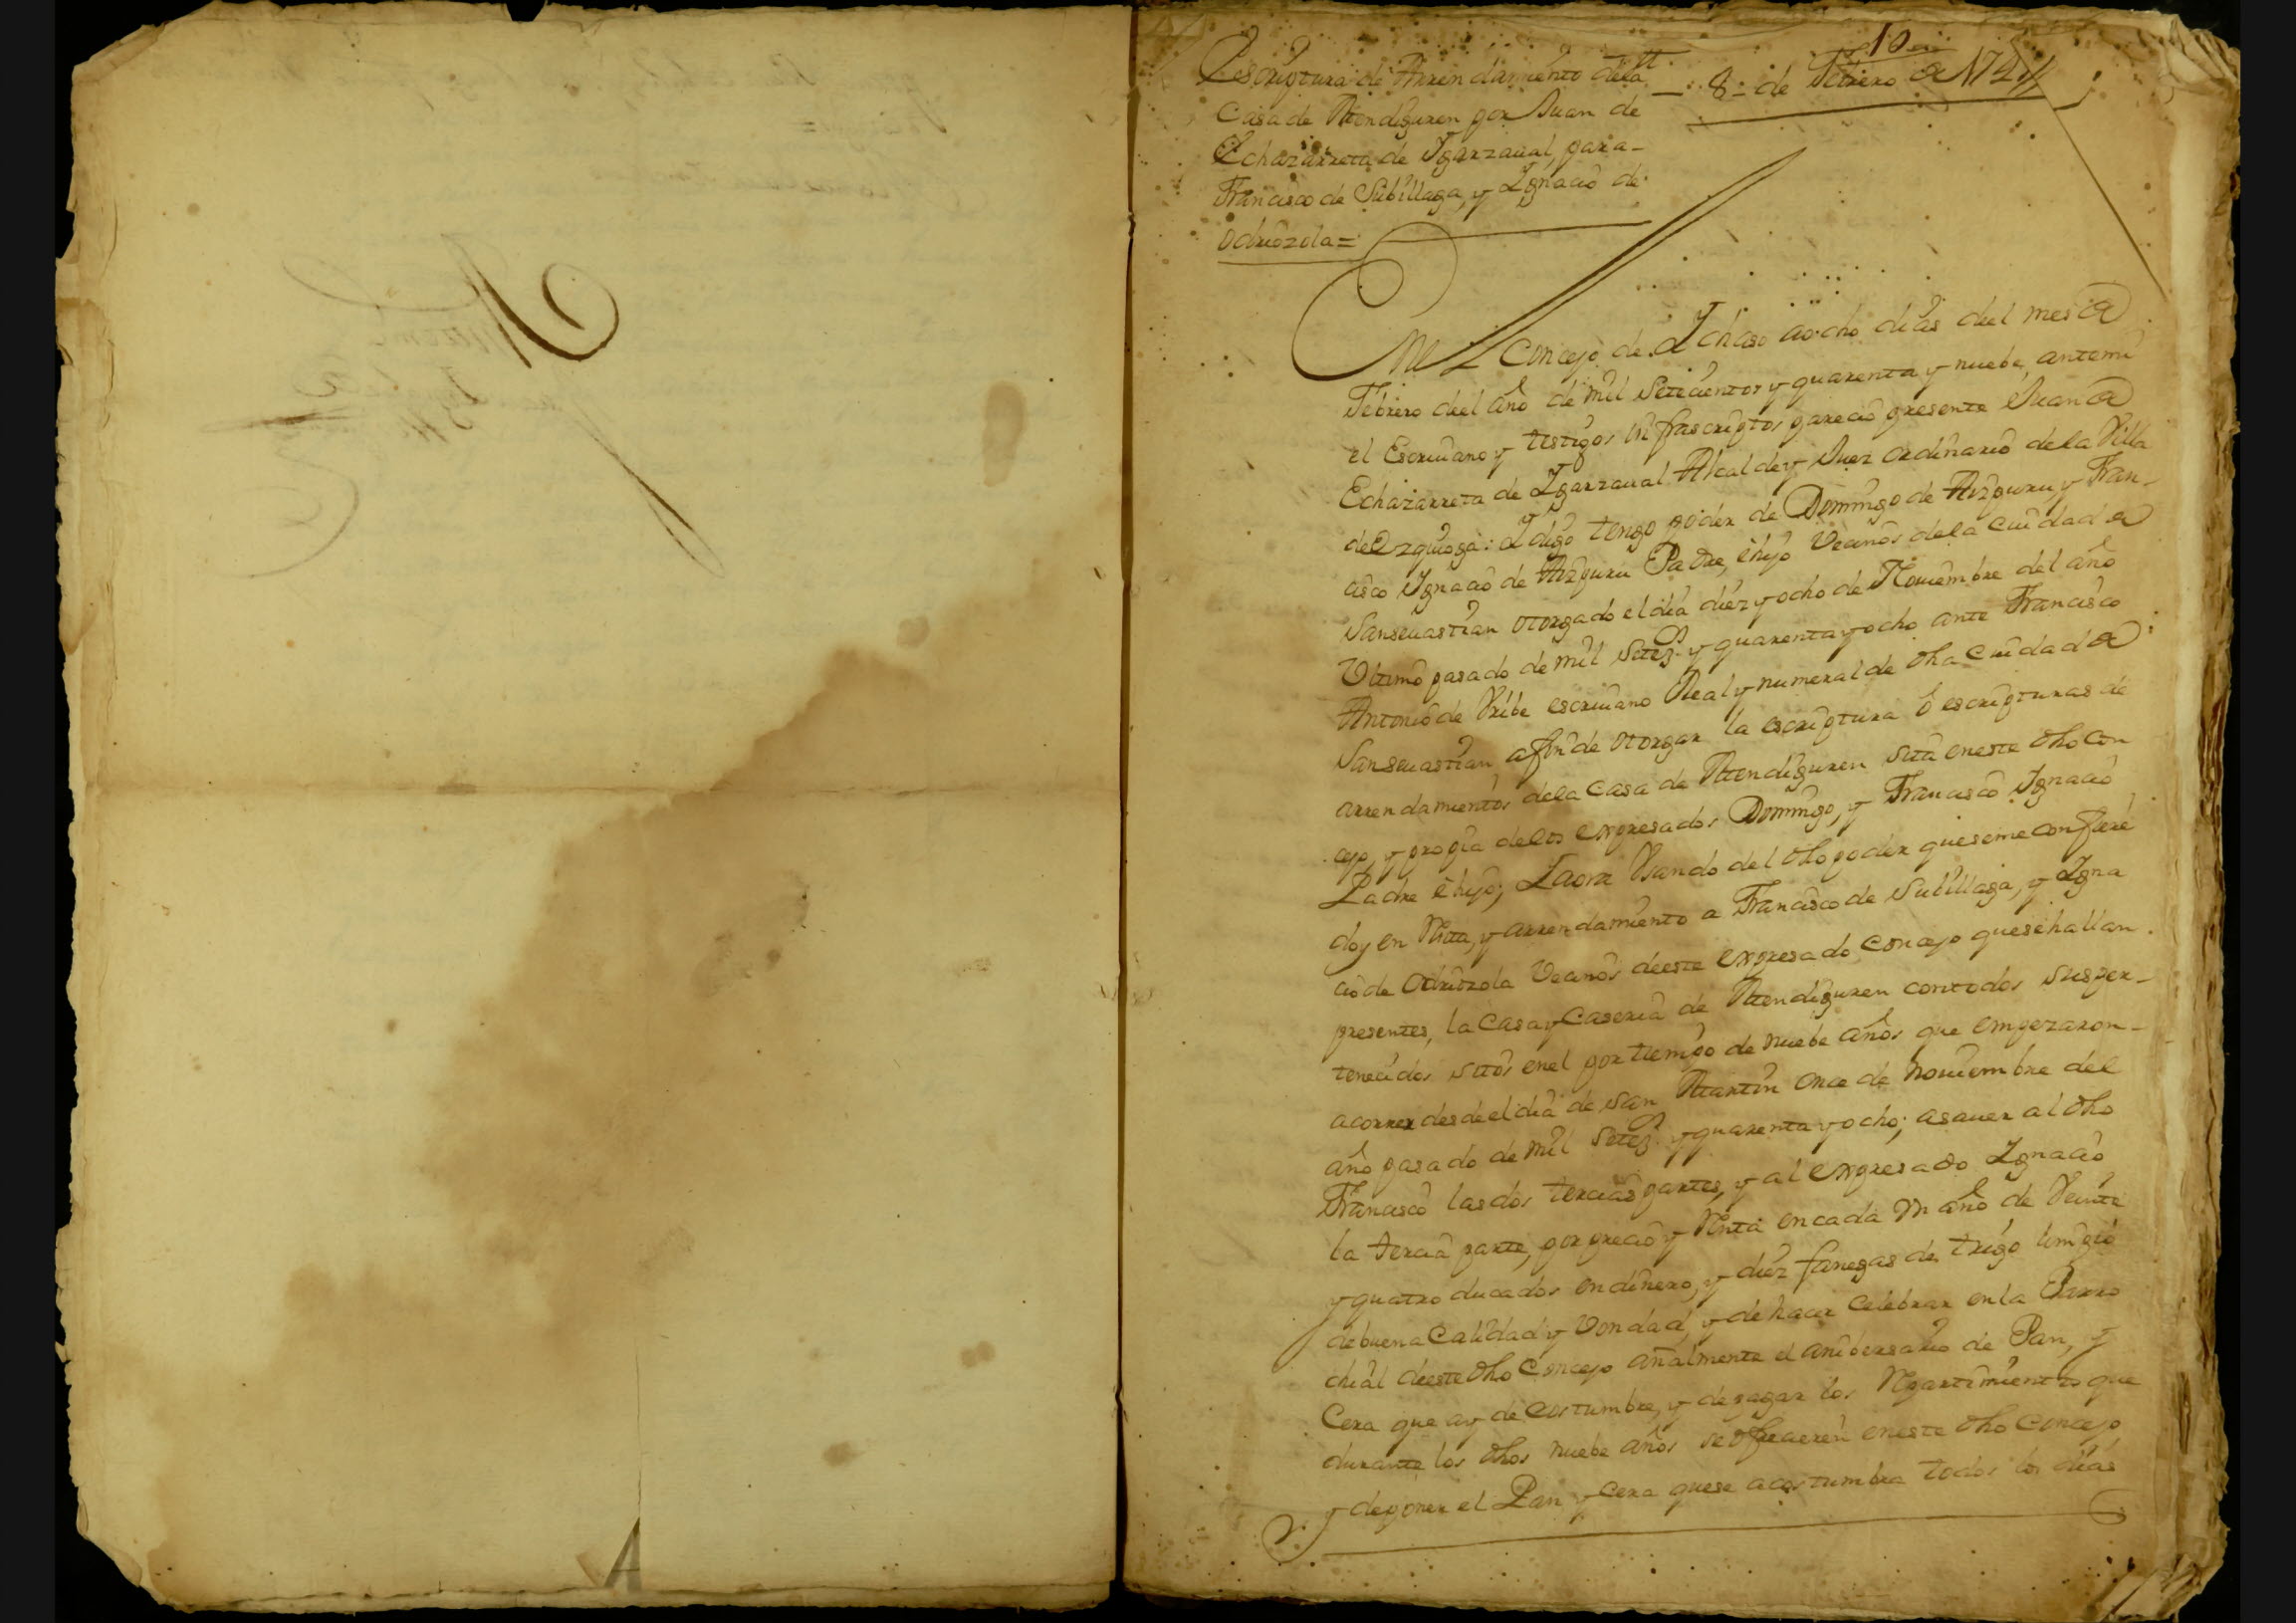 10
8 de Febrero de 1749
Escriptura de Arrendamiento dela
Casa de Mendiguren por Juan de
Echazarreta de Ygarzaual, para
Francisco de Subillaga, y Ygnacio de
Odriozola =
En el Concejo de Ychaso a ocho dias del mes de
Febrero del año de mil Setecientos y quarenta y nuebe, antemi
el Escriuano y testigos infrascriptos parecio presente Juan de
Echazarreta de Ygarzaual Alcalde y Juez ordinario dela Villa
de Ezquioga: Y digo tengo poder de Domingo de Aizpuru, y Fran-
cisco Ygnacio de Aizpuru Padre, è hijo Vecinos dela Ciudad de
Sanseuastian otorgado el dia diez y ocho de Nouiembre del año
Vltimo pasado de mil Setez.s y quarenta y ocho ante Francisco
Antonio de Vribe escriuano Real y numeral de dha Ciudad de
Sanseuastian afin de otorgar la escriptura ò escripturas de
arrendamientos dela Casa de Mendiguren sita eneste dho con
cejo, y propia delos expresados Domingo, y Francisco Ygnacio
Padre è hijo; Y aora Vsando del dho poder queseme confiere
doy en Renta, y arrendamiento a Francisco de Subillaga, y Ygna
cio de Odriozola Vecinos deeste expresado Concejo quesehallan
presentes, la Casa y Caseria de Mendiguren contodos susper-
tenecidos sitos enel por tiempo de nuebe años que empezaron
acorrer desde el dia de san Martin once de nouiembre del
año pasado de mil Setez.s y quarenta y ocho; asauer al dho
Francisco las dos tercias partes, y al expresado Ygnacio
la tercia parte, por precio y Renta encada Vn año de Veinte
y quatro ducados endinero, y diez fanegas de trigo limpio
debuena Calidad y Vondad, y de hacer Celebrar enla Parro
chial deeste dho Concejo añalmente el anibersario de Pan, y
Cera que ay de costumbre, y depagar los Repartimientos que
durante los dhos nuebe años se ofrecieren eneste dho Concejo
y deponer el Pan y Cera quese acostumbra todos los dias